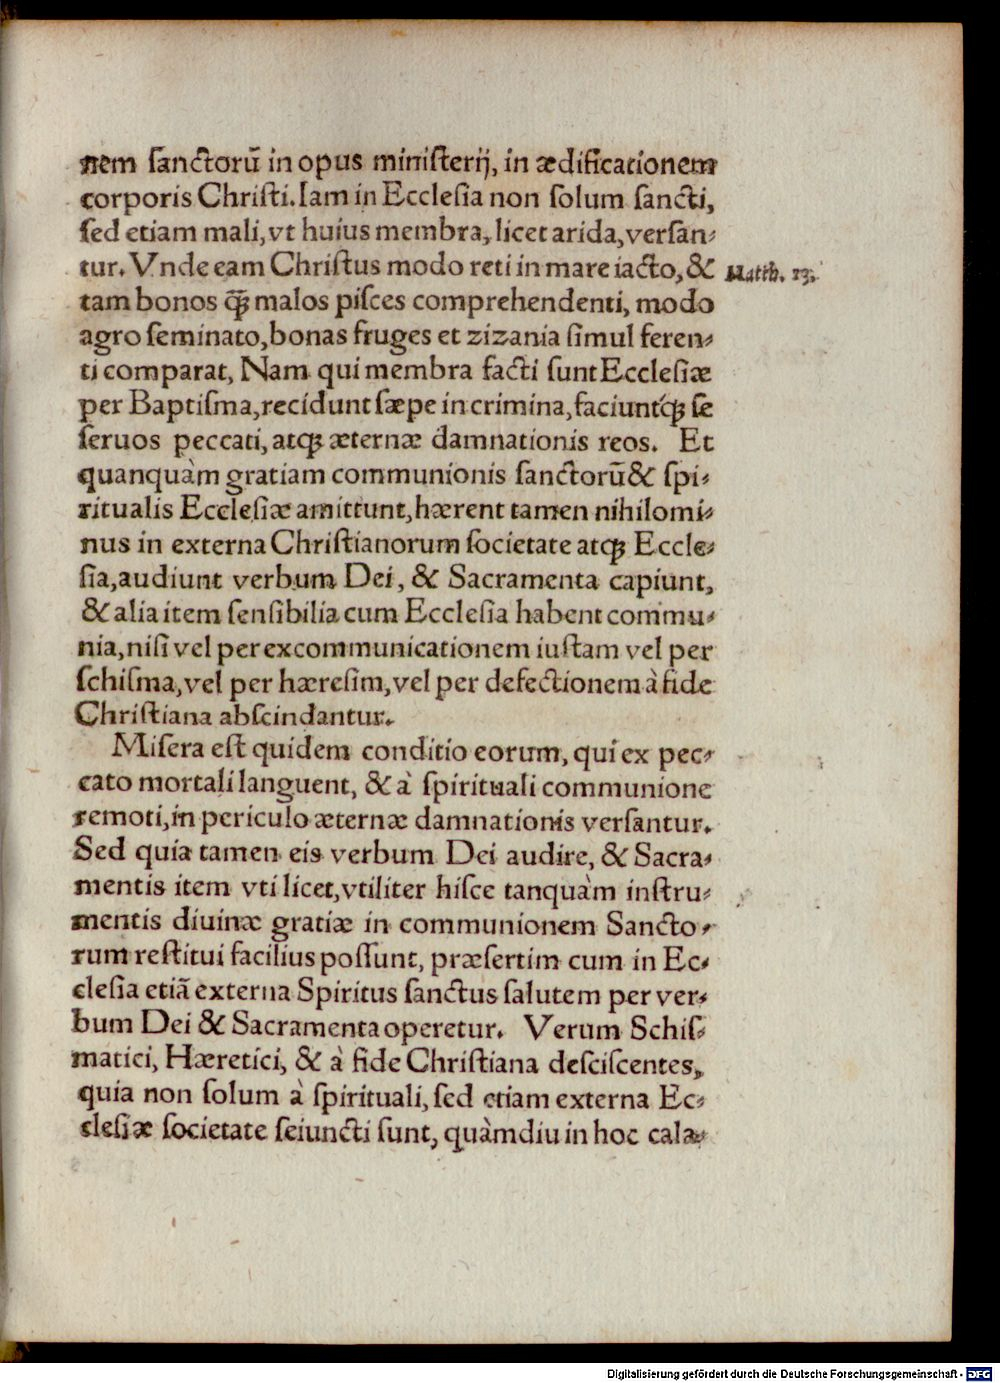 nem ſanctorū in opus miniſterij, in ædificationem
corporis Chriſti. Iam in Eccleſia non ſolum ſancti,
ſed etiam mali, vt huius membra, licet arida, verſan-
tur. Vnde eam Chriſtus modo reti in mare iacto, &
Matth. 13.
tam bonos q̄ꝫ malos piſces comprehendenti, modo
agro ſeminato, bonas fruges et zizania ſimul feren-
ti comparat, Nam qui membra facti ſunt Eccleſiæ
per Baptiſma, recidunt ſæpe in crimina, faciuntq́ꝫ ſe
ſeruos peccati, atqꝫ æternæ damnationis reos. Et
quanquàm gratiam communionis ſanctorū & ſpi-
ritualis Eccleſiæ amittunt, hærent tamen nihilomi-
nus in externa Chriſtianorum ſocietate atqꝫ Eccle-
ſia, audiunt verbum Dei, & Sacramenta capiunt,
& alia item ſenſibilia cum Eccleſia habent commu-
nia, niſi vel per excommunicationem iuſtam vel per
ſchiſma, vel per hæreſim, vel per defectionem à fide
Chriſtiana abſcindantur.
Miſera eſt quidem conditio eorum, qui ex pec-
cato mortali languent, & à ſpirituali communione
remoti, in periculo æternæ damnationis verſantur.
Sed quia tamen eis verbum Dei audire, & Sacra-
mentis item vti licet, vtiliter hiſce tanquàm inſtru-
mentis diuinæ gratiæ in communionem Sancto-
rum reſtitui facilius poſſunt, præſertim cum in Ec-
cleſia etiā externa Spiritus ſanctus ſalutem per ver-
bum Dei & Sacramenta operetur. Verum Schiſ-
matici, Hæretici, & à fide Chriſtiana deſciſcentes,
quia non ſolum à ſpirituali, ſed etiam externa Ec-
cleſiæ ſocietate ſeiuncti ſunt, quàmdiu in hoc cala-
Digitalisierung gefördert durch die Deutsche Forschungsgemeinschaft - DFG